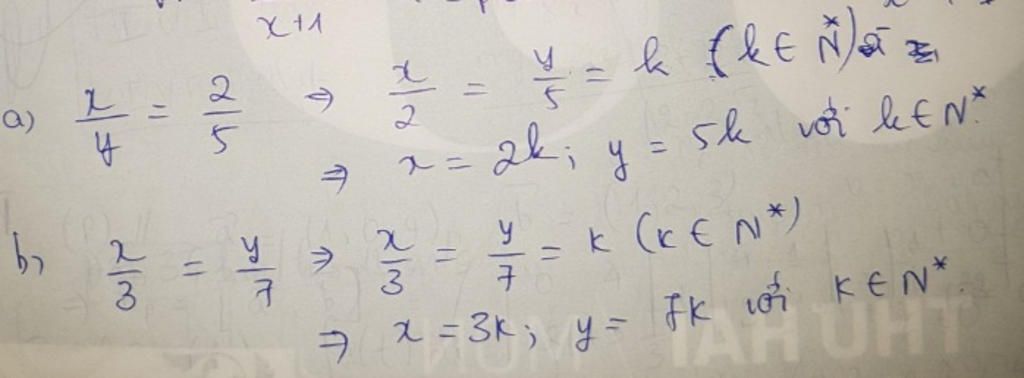 x+1
a) x/y = 2/5 ⇒ x/2 = y/5 = k (k ∈ N*)
⇒ x = 2k; y = 5k với k ∈ N*
b) x/3 = y/7 ⇒ x/3 = y/7 = k (k ∈ N*)
⇒ x = 3k; y = 7k với k ∈ N*